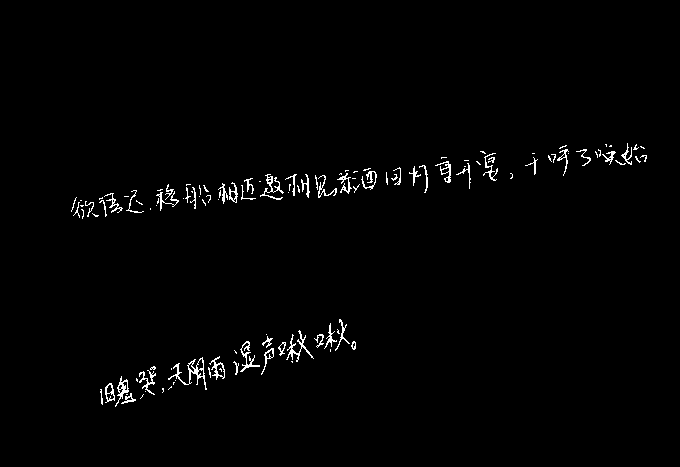 欲语迟,移船相近邀相见,添酒回灯重开宴,千呼万唤始
旧鬼哭,天阴雨湿声啾啾。